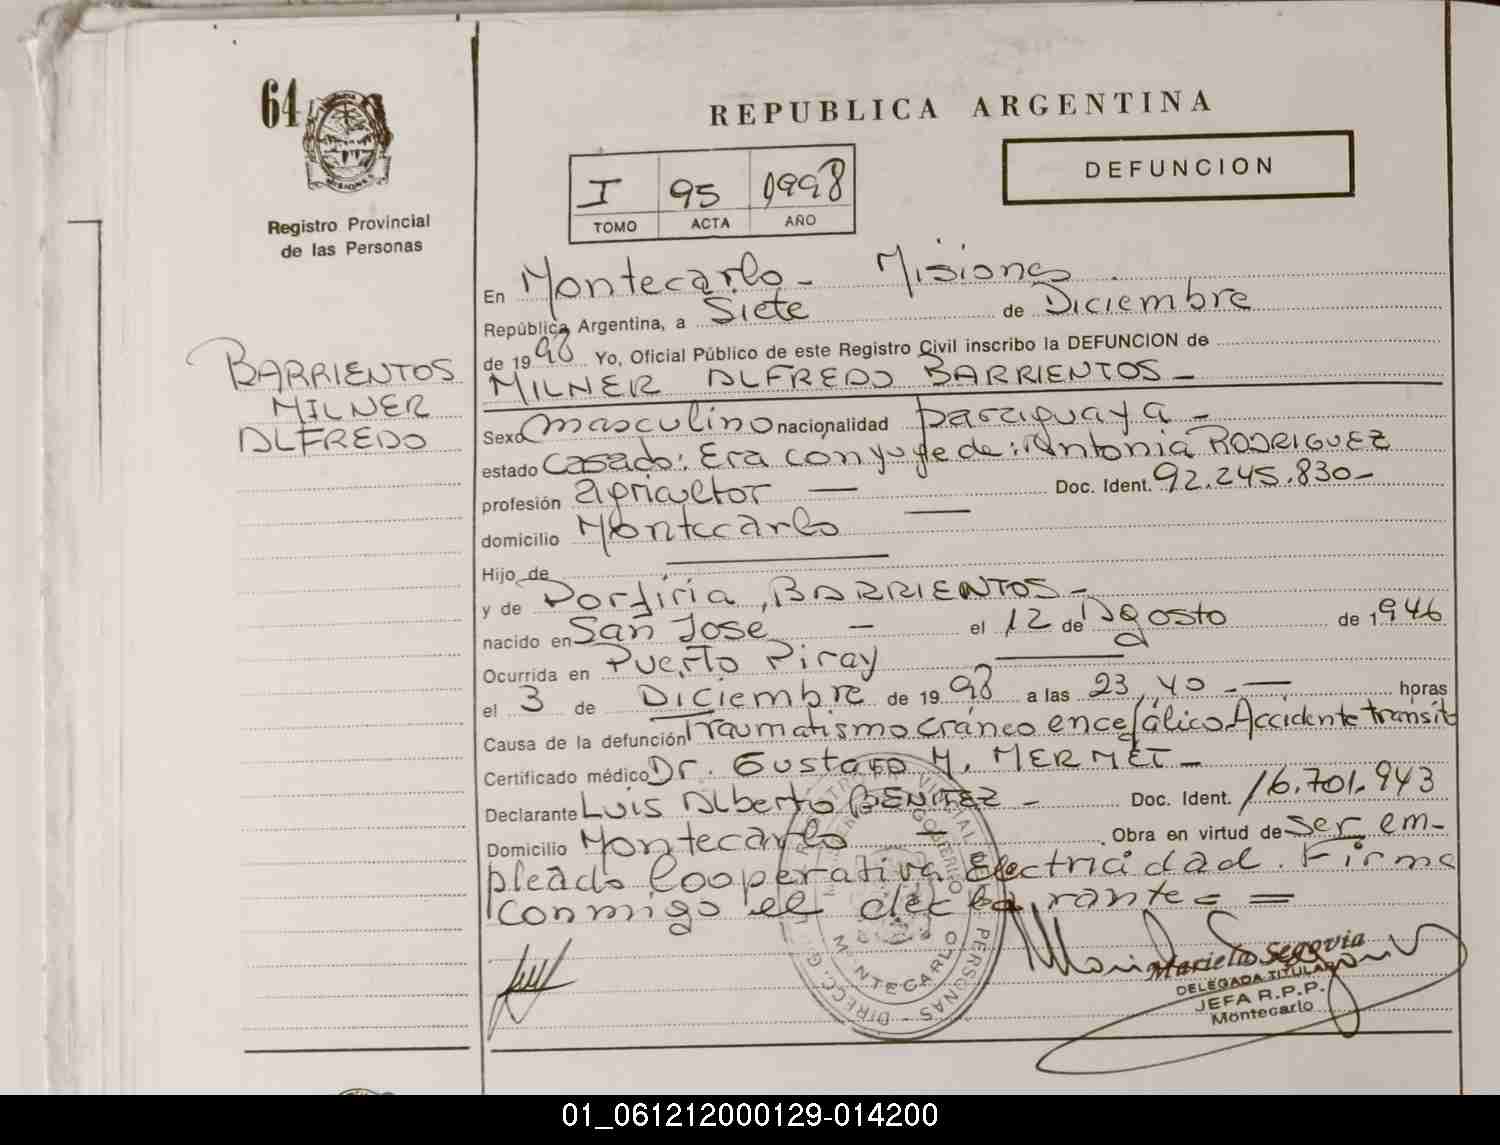 64
MISIONES
Registro Provincial
de las Personas
BARRIENTOS
MILNER
ALFREDO
REPUBLICA ARGENTINA
DEFUNCION
I 95 1998
TOMO ACTA AÑO
En Montecarlo - Misiones
República Argentina, a Siete de Diciembre
de 1998 Yo, Oficial Público de este Registro Civil inscribo la DEFUNCION de
MILNER ALFREDO BARRIENTOS -
Sexo masculino nacionalidad paraguaya -
estado Casado: Era conyuge de: Antonia RODRIGUEZ
profesión agricultor — Doc. Ident. 92.245.830-
domicilio Montecarlo —
Hijo de —
y de Porfiria, BARRIENTOS -
nacido en San Jose - el 12 de Agosto de 1946
Ocurrida en Puerto Piray —
el 3 de Diciembre de 1998 a las 23,40 - — horas
Causa de la defunción Traumatismo cráneo encefálico Accidente transito
Certificado médico Dr. Gustavo M. MERMET -
Declarante Luis Alberto BENITEZ - Doc. Ident. 16.701.943
Domicilio Montecarlo - Obra en virtud de ser em-
pleado Cooperativa Electricidad. Firma
conmigo el declarante = =
MONTECARLO
Mariela Segovia
DELEGADA TITULAR
JEFA R.P.P.
Montecarlo
01_061212000129-014200